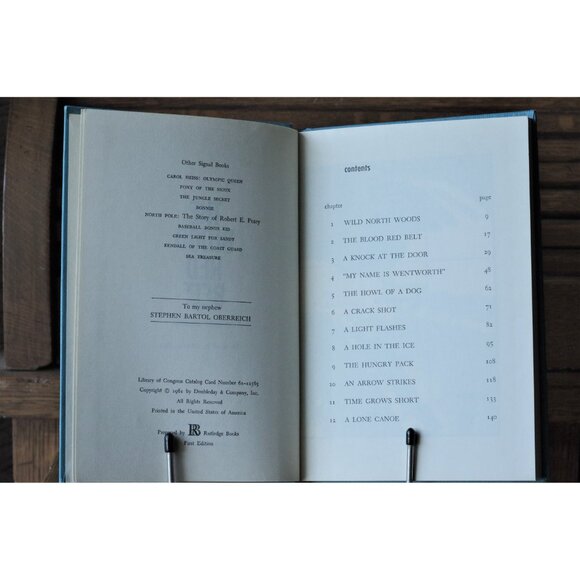 Other Signal Books
CAROL HEISS: OLYMPIC QUEEN
PONY OF THE SIOUX
THE JUNGLE SECRET
BONNIE
NORTH POLE: The Story of Robert E. Peary
BASEBALL BONUS KID
GREEN LIGHT FOR SANDY
KENDALL OF THE COAST GUARD
SEA TREASURE
To my nephew
STEPHEN BARTOL OBERREICH
Library of Congress Catalog Card Number
Copyright © by Doubleday & Company, Inc.
All Rights Reserved
Printed in the United States of America
Prepared by RB Rutledge Books
First Edition
contents
chapter page
1 WILD NORTH WOODS 9
2 THE BLOOD RED BELT 17
3 A KNOCK AT THE DOOR 29
4 "MY NAME IS WENTWORTH" 48
5 THE HOWL OF A DOG 62
6 A CRACK SHOT 71
7 A LIGHT FLASHES 82
8 A HOLE IN THE ICE 95
9 THE HUNGRY PACK 108
10 AN ARROW STRIKES 118
11 TIME GROWS SHORT 133
12 A LONE CANOE 140